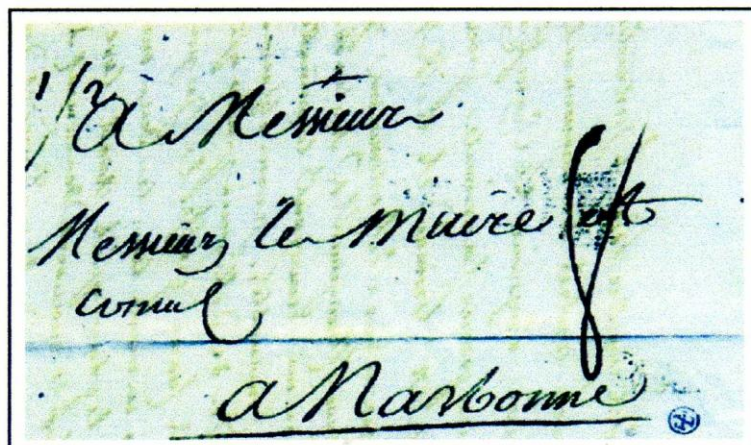 1/2 à Messieurs
Messieurs le maire et
consul
a Narbonne